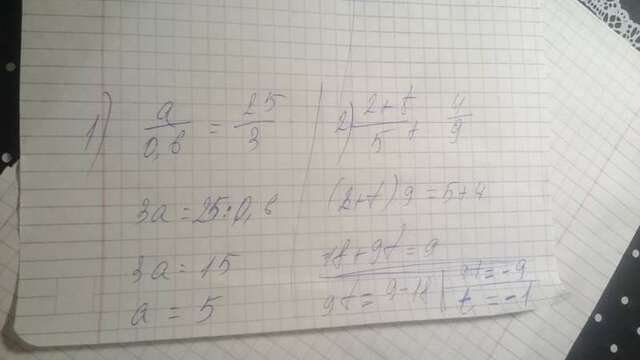 1) a/0,6 = 25/3
3a = 25 : 0,6
3a = 15
a = 5
2) 2+t/5 + 4/9
(2+t) 9 = 5+4
18+9t = 9
9t = 9-18
9t = -9
t = -1